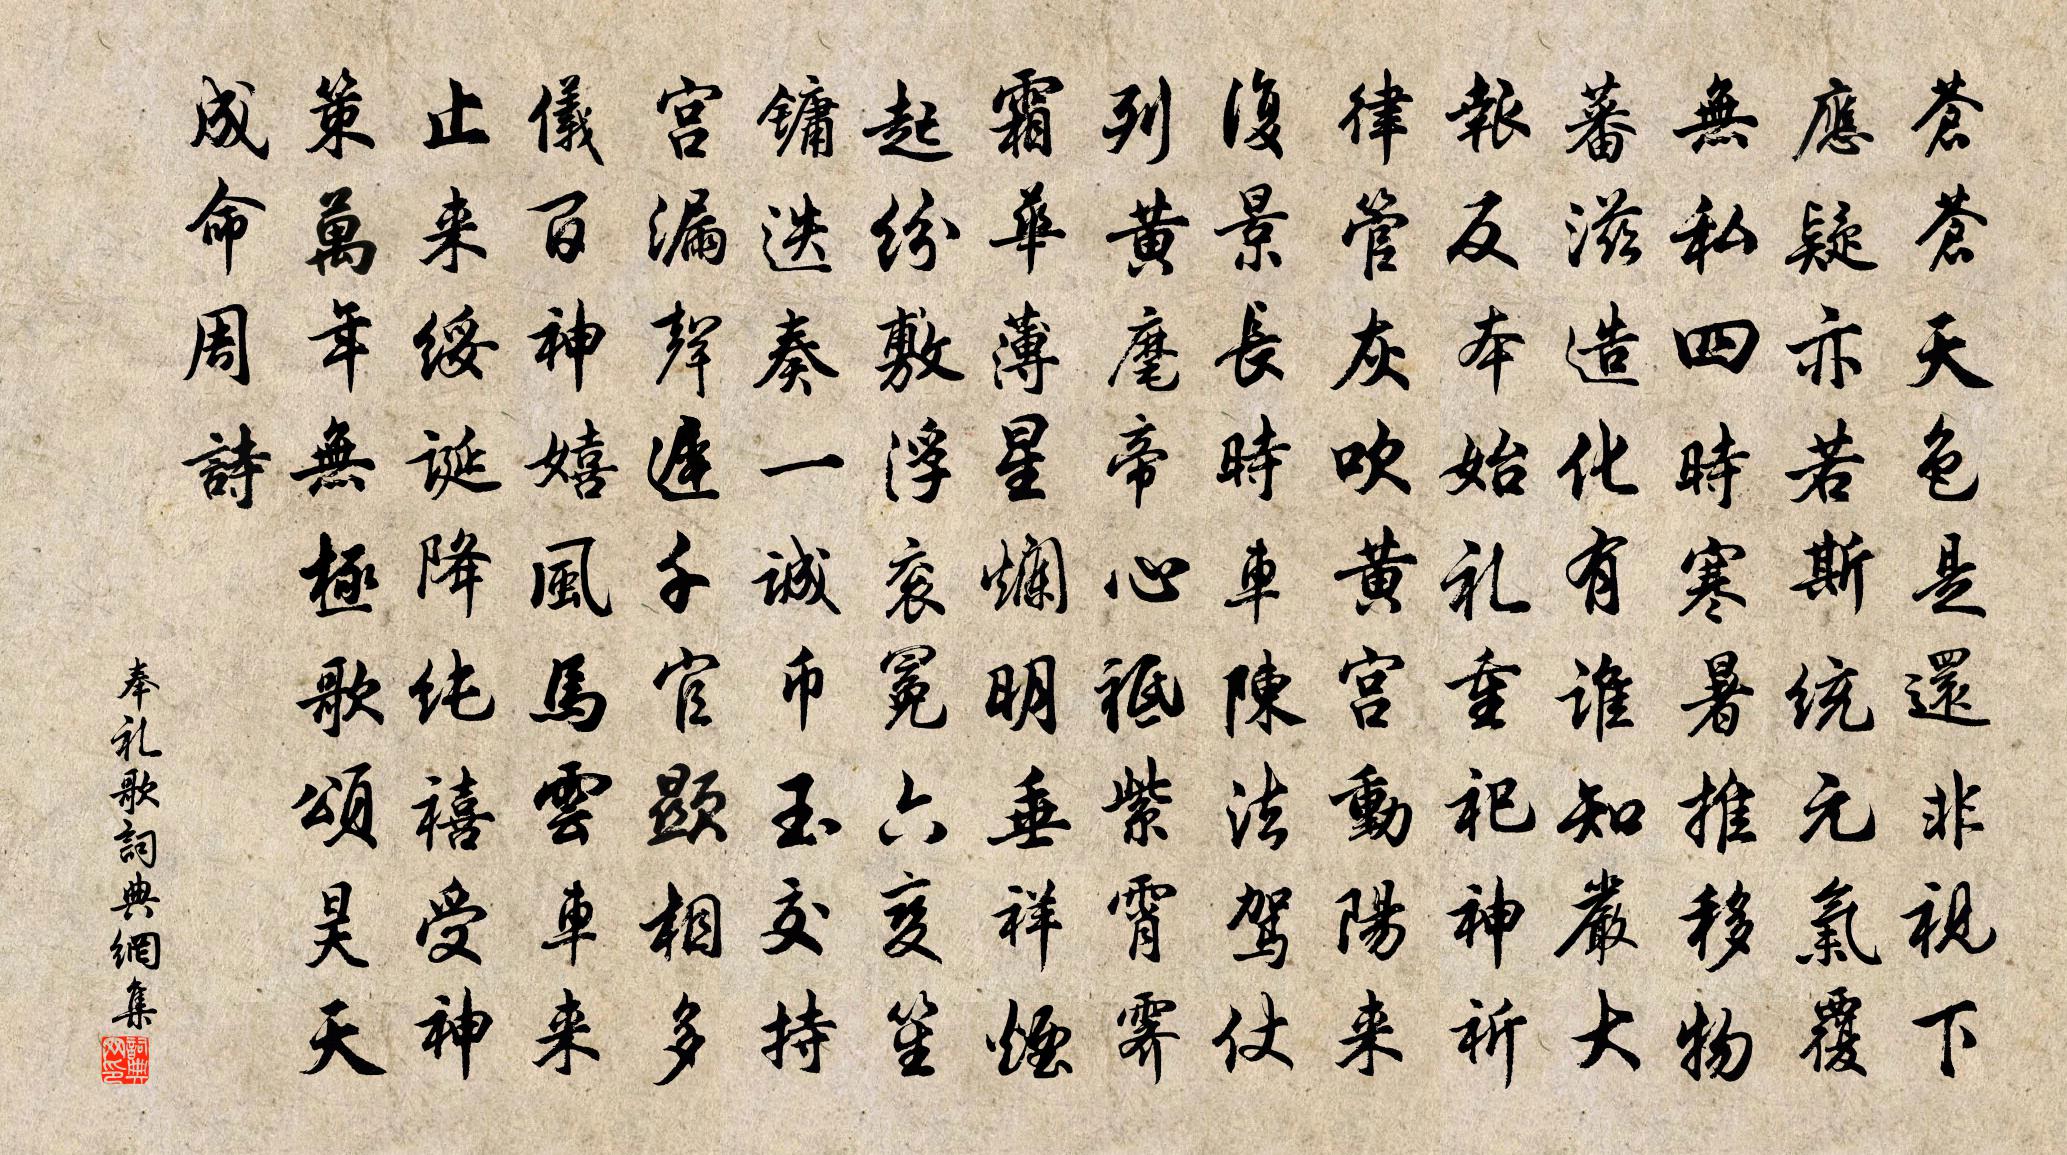 蒼蒼天色是還非視下
應疑亦若斯統元氣覆
無私四時寒暑推移物
蕃滋造化有誰知嚴大
報反本始礼重祀神祈
律管灰吹黄宮動陽来
復景長時車陳法駕仗
列黄麾帝心祗紫霄霽
霜華薄星爛明垂祥煙
起紛敷浮衮冕六变笙
鏞迭奏一誠币玉交持
宮漏聲遲千官顯相多
儀百神嬉風馬雲車来
止来綏誕降纯禧受神
策萬年無極歌頌昊天
成命周詩
奉礼歌詞典網集
詞典网印